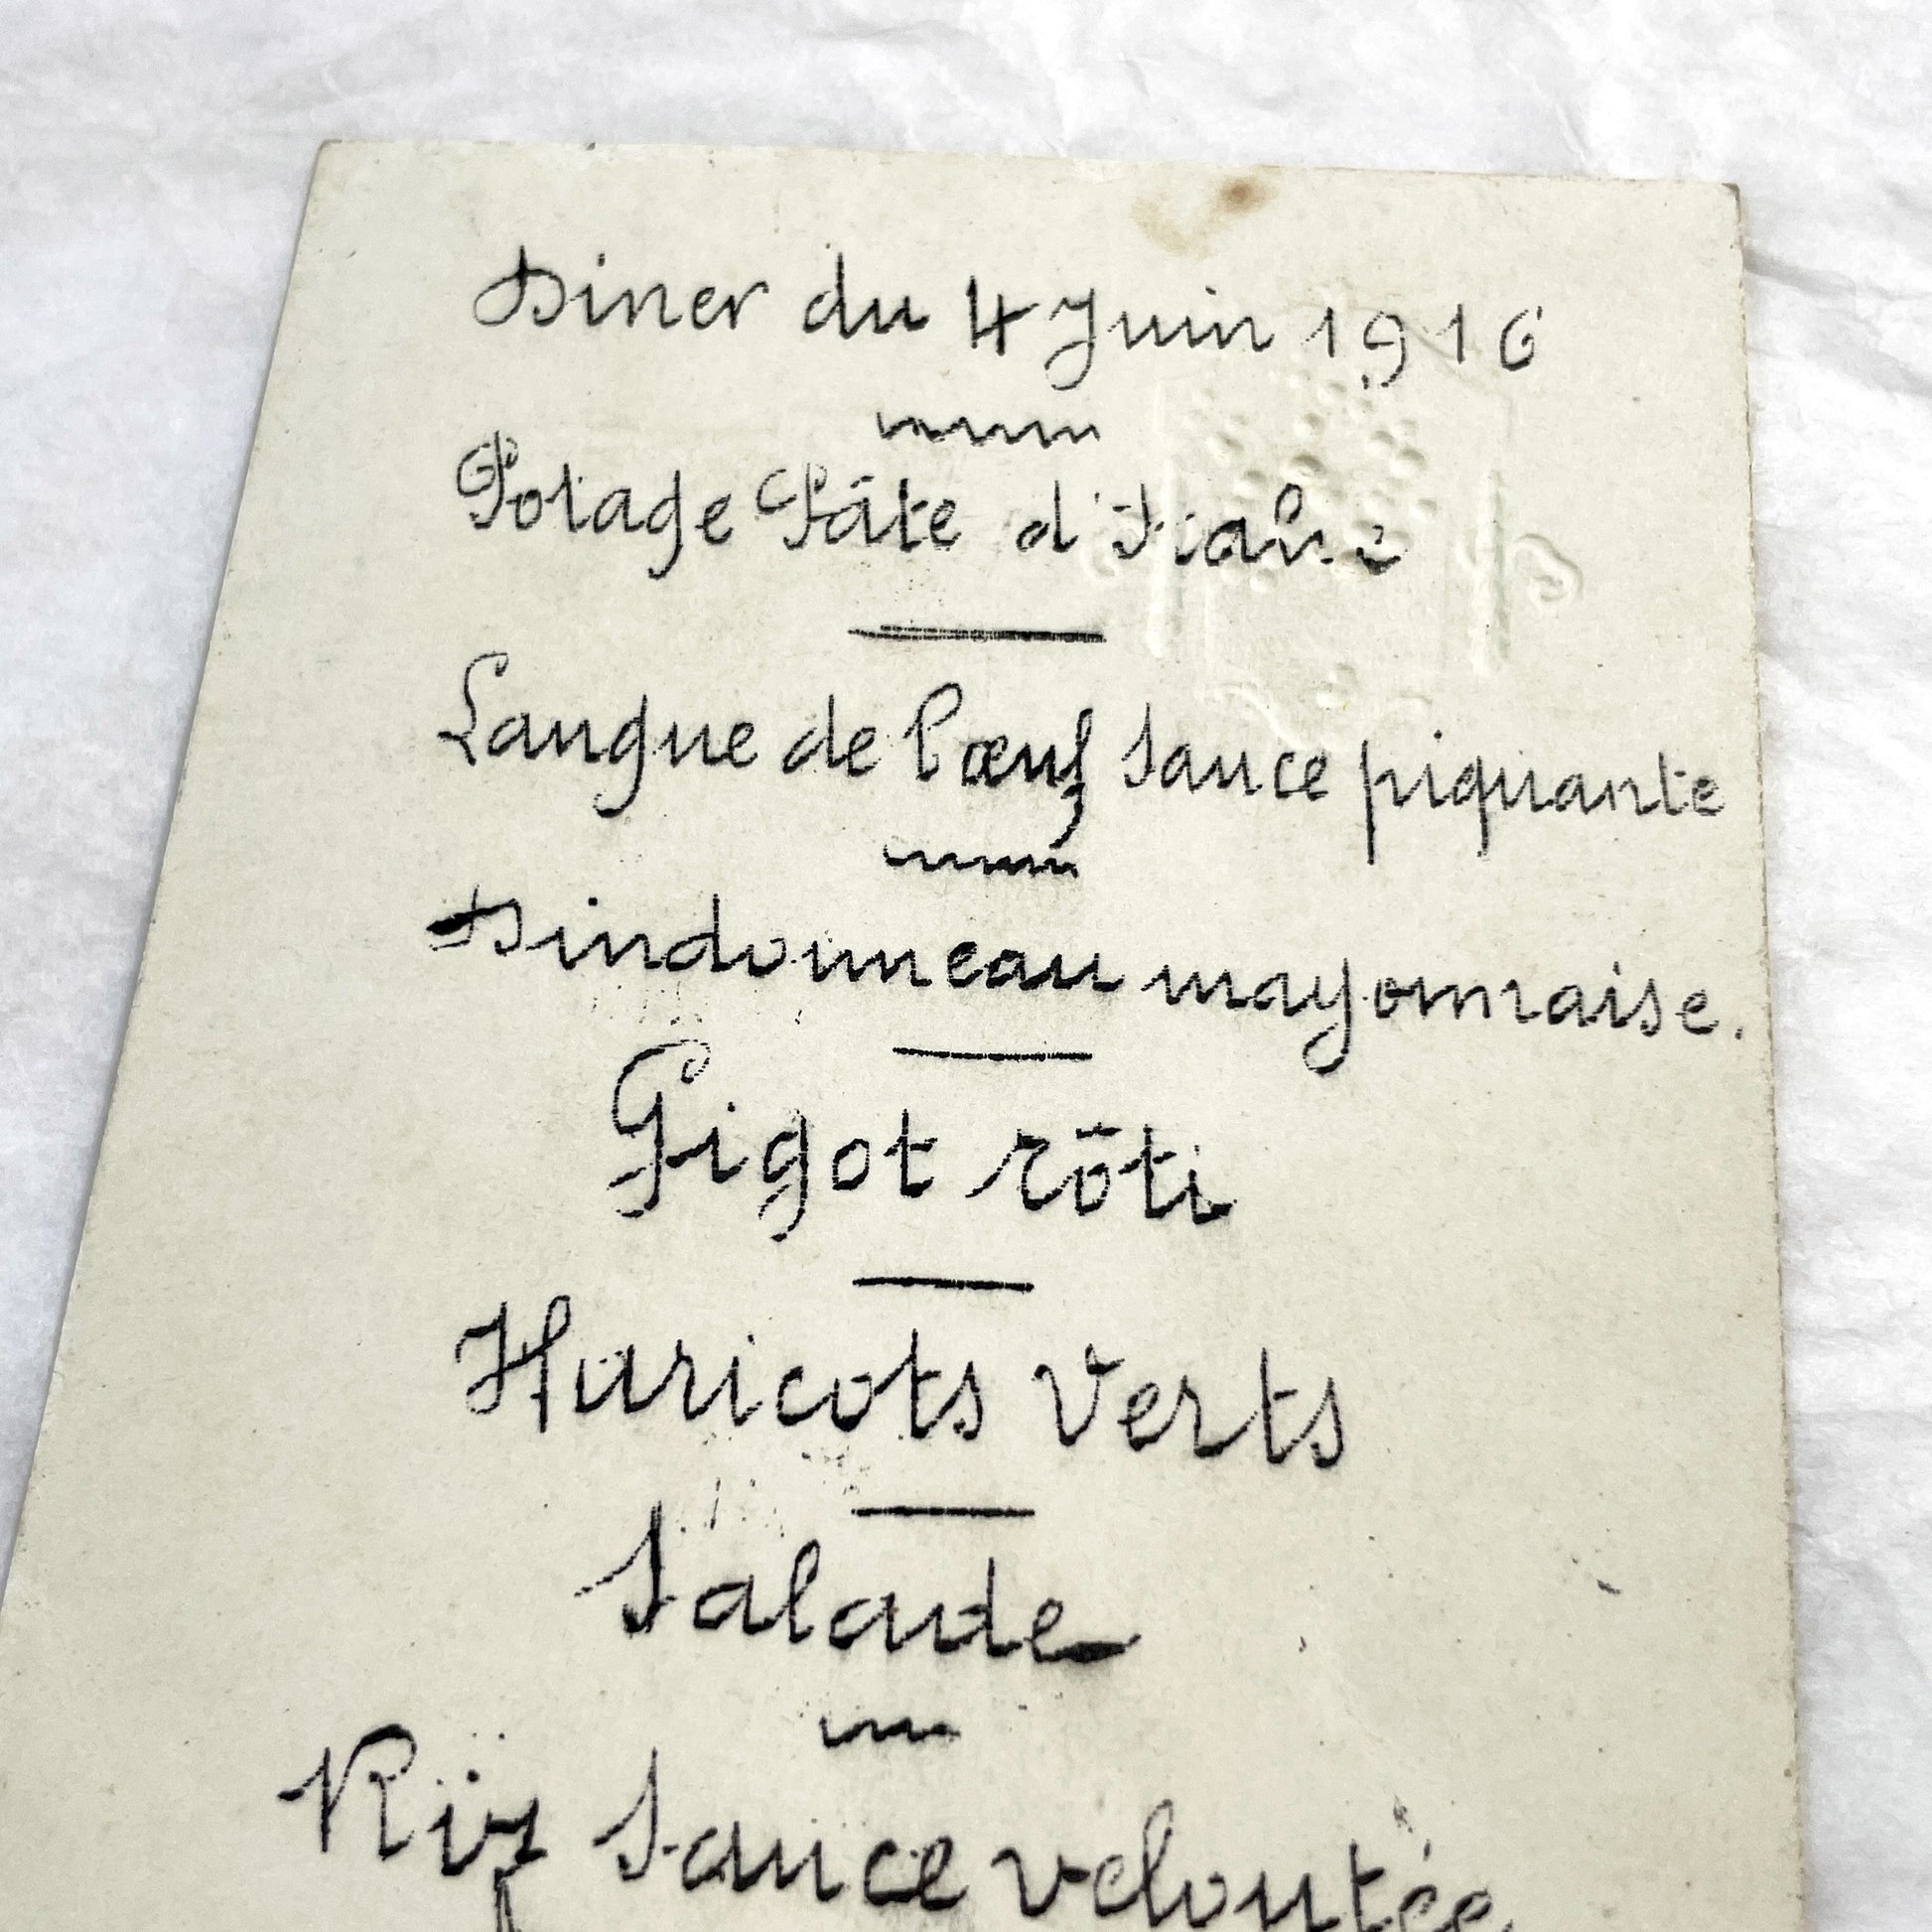 Diner du 4 Juin 1916
Potage Pâte d'Italie
Langue de bœuf sauce piquante
Dindonneau mayonnaise.
Gigot rôti
Haricots verts
Salade
Riz sauce veloutée